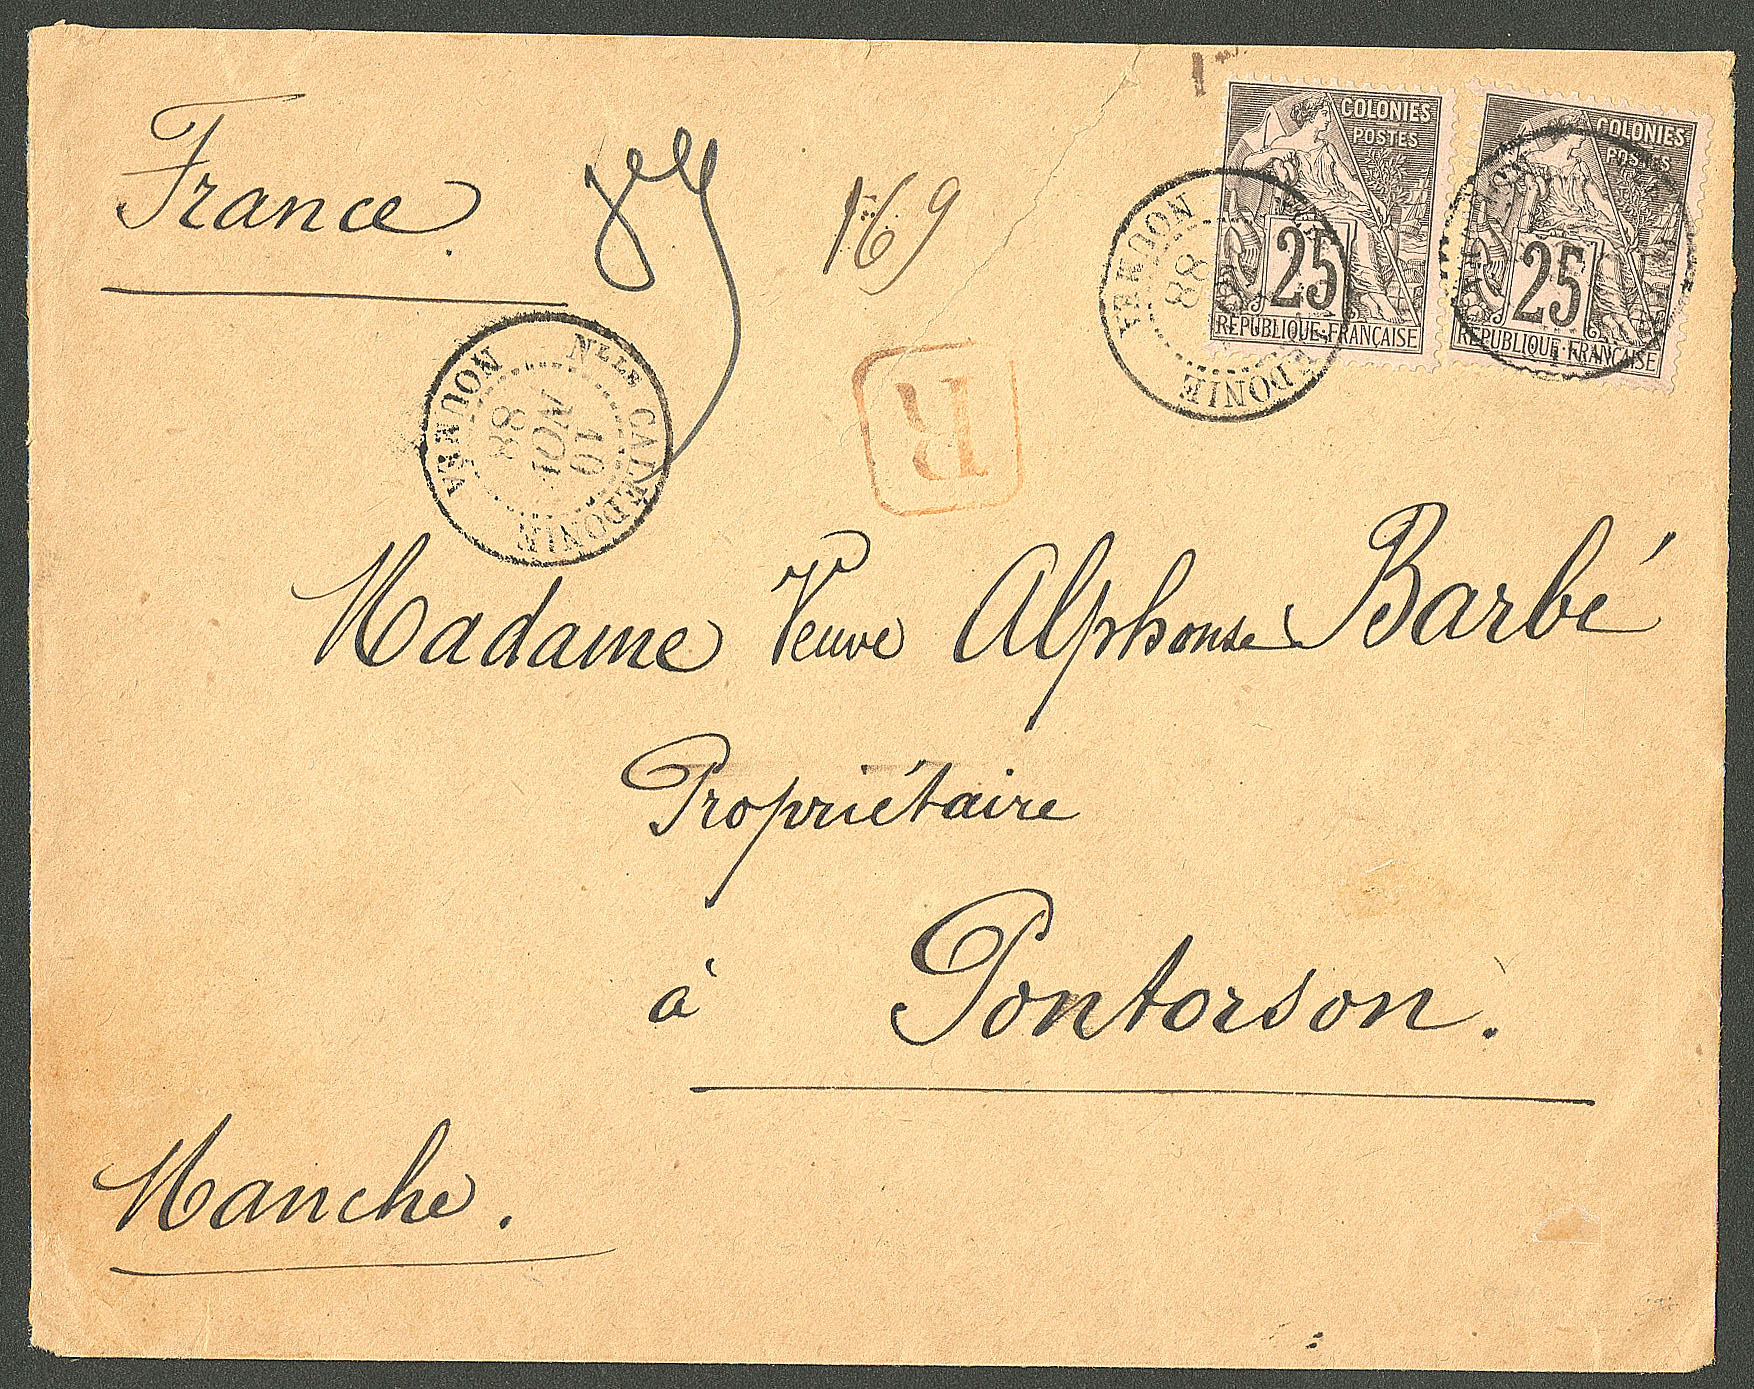 France.
169
COLONIES
POSTES
25
REPUBLIQUE FRANÇAISE
COLONIES
POSTES
25
REPUBLIQUE FRANÇAISE
NOUMEA
88
EDONIE
NLLE CALEDONIE
10
NOV
88
NOUMEA
R
Madame Veuve Alphonse Barbé
Propriétaire
à Pontorson.
Manche.